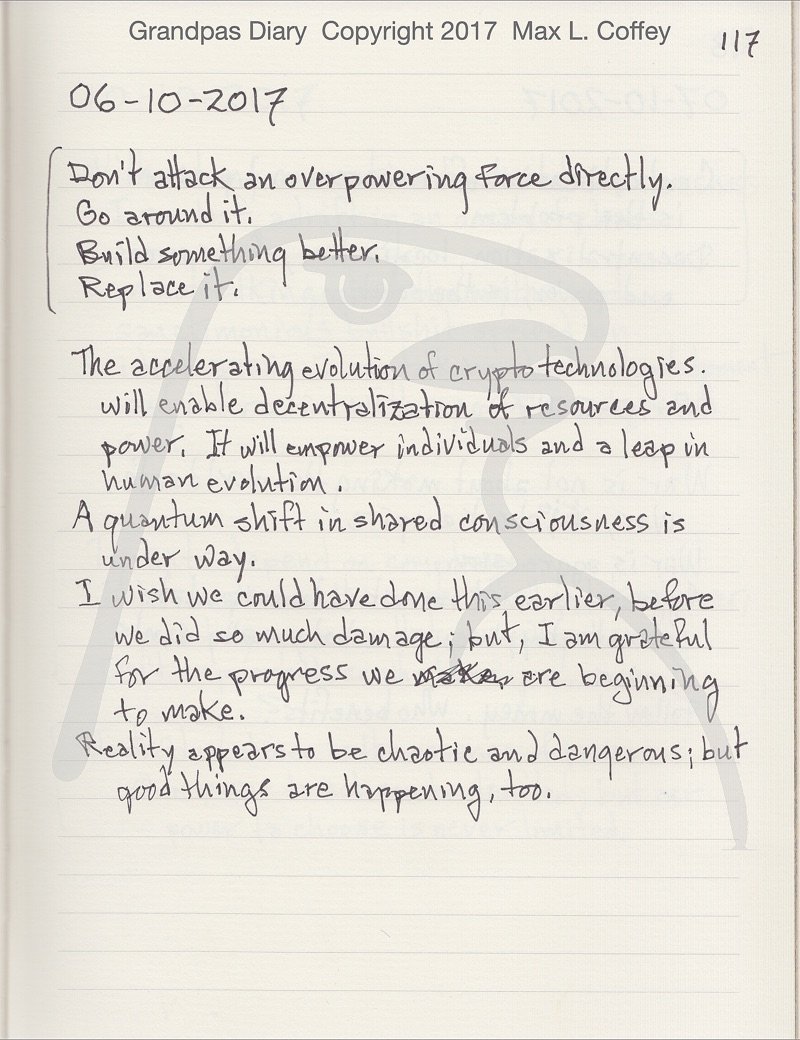 Grandpas Diary Copyright 2017 Max L. Coffey
117
06-10-2017
Don't attack an overpowering force directly.
Go around it.
Build something better.
Replace it.
The accelerating evolution of crypto technologies.
will enable decentralization of resources and
power. It will empower individuals and a leap in
human evolution.
A quantum shift in shared consciousness is
under way.
I wish we could have done this earlier, before
we did so much damage; but, I am grateful
for the progress we are beginning
to make.
Reality appears to be chaotic and dangerous; but
good things are happening, too.